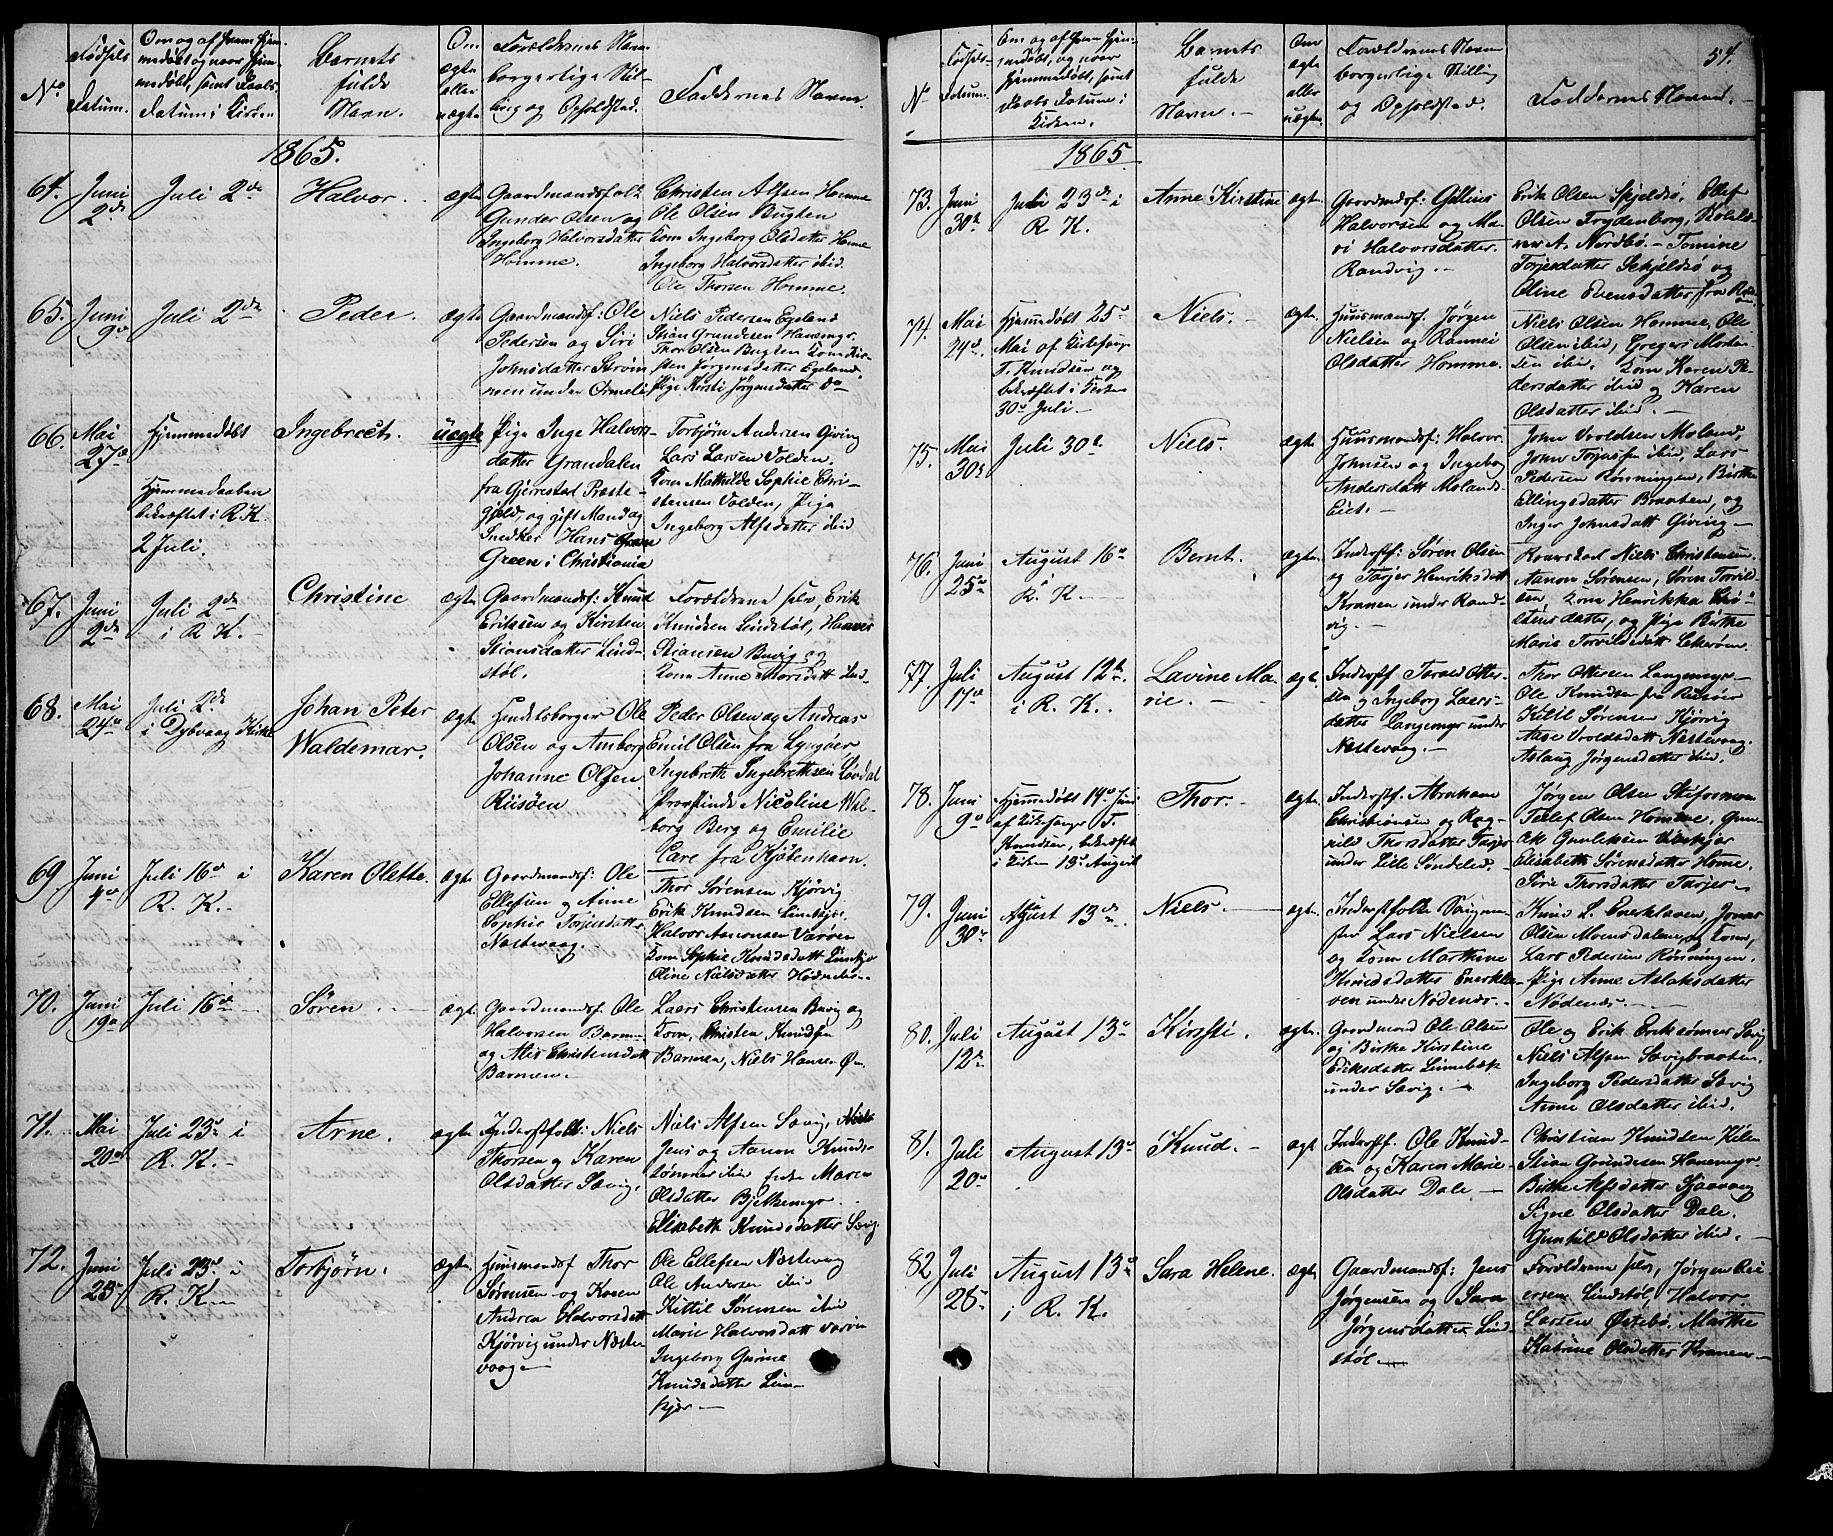 No
Fødsels
Datum.
Om og af hvem hjem-
medøbt og naar hjem-
medøbt, samt Daabs-
Datum i Kirken
Barnets
fulde
Navn.
Om
ægte
eller
uægte
Forældrenes Navn
borgerlige Stil-
ling og Opholdsted.
Faddernes Navne.
1865.
64. Juni
2de
Juli 2de
Halvor.
ægte
Gaardmandsfolk
Gunder Olsen og
Ingeborg Halvorsdatter
Homme.
Christen Alfsen Homme
Ole Olsen Bugten
Kom Ingeborg Olsdatter Homme
Ingeborg Halvorsdatter ibid.
Ole Thorsen Homme.
65. Juni
9de
Juli 2de
Peder.
ægte
Gaardmandsf: Ole
Pedersen og Siri
Johnsdatter Strøm-
men under
Niels Pedersen Egeland
Stian Grundesen Hanemyr
Thor Olsen Bugten Kom Kir-
sten Jørgensdatter Egeland,
Pige Kersti Jørgensdatter do
66. Mai
27de
Hjemmedøbt
Hjemmedaaben
bekræftet i R. K.
2 Juli.
Ingebrect.
uægte
Pige Inge Halvors-
datter Grandalen
fra Gjerrestad Præste-
gjeld, og gift Mand og
Snedker Hans
Green i Christiania
Torbjørn Andersen Giving
Lars Larsen Volden.
Kom Mathilde Sophie Chri-
stensen Volden, Pige
Ingeborg Alfsdatter ibid
67. Juni
2de
Juli 2de
i R. K.
Christine
ægte
Gaardmandsf: Knud
Eriksen og Kirsten
Stiansdatter Lind-
støl.
Forældrene selv, Erik
Knudsen Lindstøl, Hans
Stiansen Buvig og
Kom Anne
68. Mai
24de
Juli 2de
i Dybvaag Kirke
Johan Peter
Waldemar.
ægte
Handelsborger Ole
Olsen og Amborg
Johanne Olsen
Riisøen
Peder Olsen og Andreas
Emil Olsen fra Lyngøer
Ingebreth Ingebrethsen Løvdal
Nicoline Wil-
borg Berg og Emilie
Care fra Kjøbenhavn.
69. Juni
4de
Juli 16de i
R. K.
Karen Olette.
ægte
Gaardmandsf: Ole
Ellefsen og Anne
Sophie Torjusdatter
Næstevaag.
Thor Sørensen Kjørvig
Erik Knudsen
Halvor Aanonsen Varøen
Kom Sophie Knudsdatt
Oline Nielsdatter
70. Juni
19de
Juli 16de
Søren.
ægte
Gaardmandsf. Ole
Halvorsen Barmen
og Alis Christensdatt
Barmen.
Laers Christensen Buvig og
Kom, Christen Knudsen
Barmen, Niels Hansen Øen
71. Mai
20de
Juli 23de i
R. K.
Arne.
ægte
Inderstfolk: Niels
Thorsen og Karen
Olsdatter Sævig.
Niels Alfsen Sævig,
Jens og Aanon Knuds-
sønner ibid Maren
Olsdatter Bjelkemyr
Elisabeth Knudsdatter Sævig.
72. Juni
25de
Juli 23de i
R. K.
Torbjørn.
ægte
Huusmandsf Thor
Sørensen og Karen
Andrea Halvorsdatt
Kjørvig under Næste-
vaag.
Ole Ellefsen Næstevaag
Ole Andersen ibid
Kittil Sørensen ibid
Marie Halvorsdatt Varøen
Ingeborg Gurine
Knudsdatter Lin-
kjær.
54.
N
Fødsels-
Datum.
Om og af hvem hjem-
medøbt, og naar
hjemmedøbt, samt
Daabs Datum i
Kirken.
Barnets
fulde
Navn.
Om
ægte
eller
uægte.
Forældrenes Navn
borgerlige Stilling
og Opholdsted.
Faddernes Navne.
1865
73. Juni
30te
Juli 23de i
R. K.
Anne Kirstine
ægte.
Gaardmandsf: Gillius
Halvorsen og Ma-
ri Halvorsdatter.
Randvig.
Erik Olsen Skjeldsø, Ellef
Olsen Frydenborg,
A. Nordbø. Tomine
Torjesdatter Schjeldsø og
Oline Evensdatter fra
74. Mai
24de.
Hjemmedøbt 25de
Mai af Kirkesanger
T. Knudsen og
bekræftet i Kirken
30te Juli
Niels.
ægte.
Huusmandsf: Jørgen
Nielsen og Rannei
Olsdatter Homme.
Niels Olsen Homme, Ole
Olsen ibid, Gregers Morten-
sen ibid. Kom Karen Pe-
dersdatter ibid og Karen
Olsdatter ibid.
75. Mai
30te
Juli 30te
Niels.
ægte
Huusmandsf: Halvor
Johnsen og Ingebor
Andersdatt Molands
Eiet.
John Vroldsen Moland,
John Torjussen ibid, Lars
Pedersen Rønningen, Birthe
Ellingsdatter Braaten, og
Inger Johnsdatt Giving
76. Juni
25de
August 16de
i R. K.
Bernt.
ægte
Inderstf: Søren Olsen
og Torjer Henriksdatt
Kranen under Rand-
vig.
Niels Christensen
Aanon Sørensen, Søren Torvild-
sen, Kom Henrikka Chri-
stensdatter, og Pige Birthe
Marie Torvildsdatt
77. Juli
17de
August 12te
i R. K.
Lavine Ma-
rie.
ægte.
Inderstf: Torald Otter-
sen og Ingeborg Laers-
datter Langemyr under
Næstevaag.
Thor Ottersen Langemyr
Ole Knudsen fra Riisøer
Kitil Sørensen Kjørvig
Aase Vroldsdatt Næstevaag.
Aslaug Jørgensdatter ibid.
78. Juni
9de
Hjemmedøbt 14de Juni
af Kirkesanger T.
Knudsen, bekræftet
i Kirken 13de August
Thor.
ægte
Inderstf. Abraham
Christiansen og Rag-
nild Thorsdatter Torjer
under Lille Søndeled.
Jørgen Olsen Stifoxmoen
Tellef Olsen Homme, Gun-
Elisabeth Sørensdatter Homme.
Siri Thorsdatter Torjer
79. Juni
30te
August 13de
Niels.
ægte.
Inderstfolk
Lars Nielsen
og Kom Marthine
Knudsdatter Enerkle-
ven under Nødenes.
Knud L. Enerkleven, Jonas
Olsen Moensdalen, og Kom,
Lars Pedersen Rønningen.
Pige Anne Aslaksdatter
Nødenes.
80. Juli
12te
August 13de
Kirsti.
ægte.
Gaardmand Ole Olsen
og Birthe Kirstine
Eriksdatter Linnebæk
under Sævig.
Ole og Erik Erikssønner Sævig
Niels Alfsen Sævigbraaten.
Ingeborg Pedersdatter Sævig
Anne Olsdatter ibid.
81. Juli
20de
August 13de
Knud.
ægte
Inderstf. Ole Knud-
sen og Karen Marie
Olsdatter Dale
Christian Knudsen Kilen
Stian Grundesen Hanemyr
Birthe Alfsdatter Sjaavaag
Signe Olsdatter Dale.
Gunhild Olsdatter ibid.
82 Juli
28de
August 13de
i R. K.
Sara Helene.
ægte
Gaardmandsf: Jens
Jørgensen og Sara
Jørgensdatter Lind-
støl
Forældrene selv, Jørgen Rei-
ersen Lindstøl, Halvor
Larsen Østebø, Marthe
Katrine Olsdatter Kranen